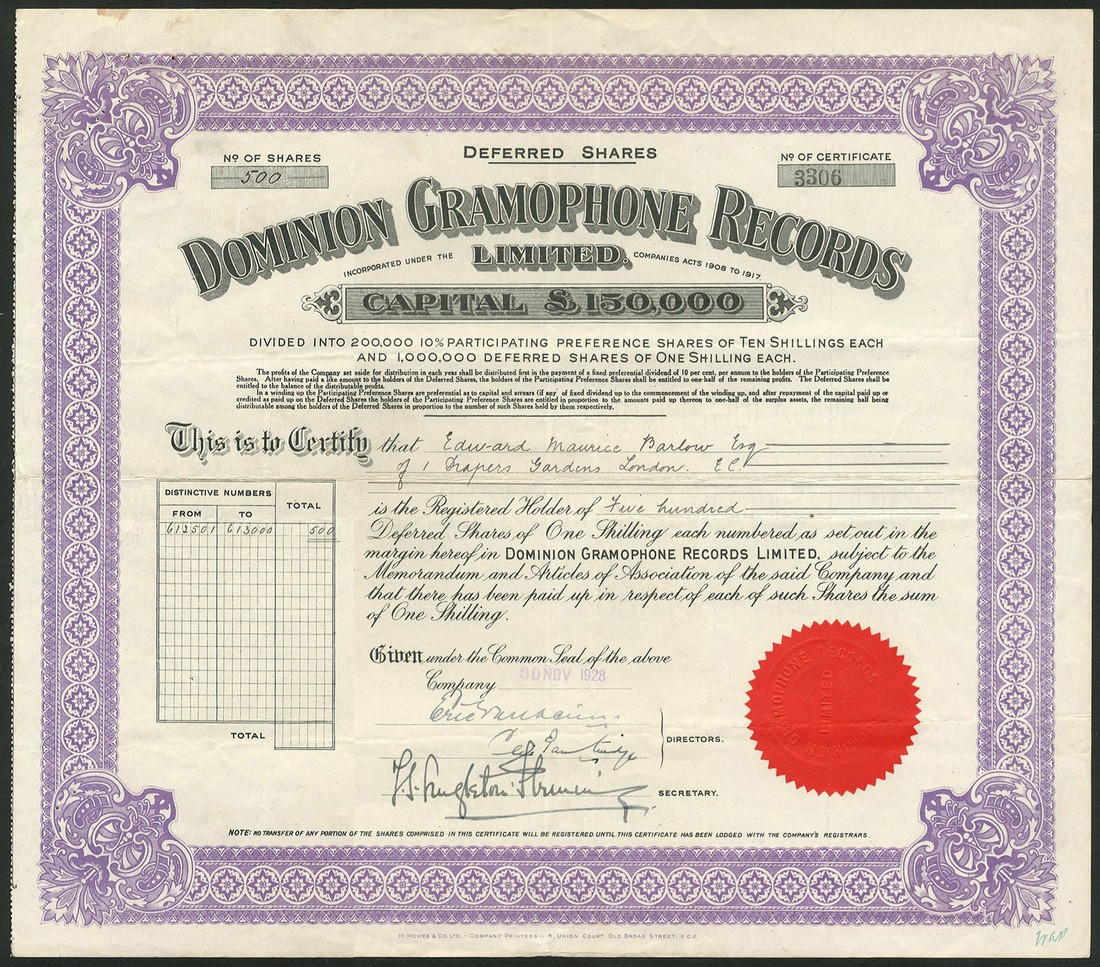 DEFERRED SHARES
No OF SHARES
500
No OF CERTIFICATE
3306
DOMINION GRAMOPHONE RECORDS
LIMITED.
INCORPORATED UNDER THE COMPANIES ACTS 1908 TO 1917.
CAPITAL £150,000
DIVIDED INTO 200,000 10% PARTICIPATING PREFERENCE SHARES OF TEN SHILLINGS EACH
AND 1,000,000 DEFERRED SHARES OF ONE SHILLING EACH.
The profits of the Company set aside for distribution in each year shall be distributed first in the payment of a fixed preferential dividend of 10 per cent. per annum to the holders of the Participating Preference
Shares. After having paid a like amount to the holders of the Deferred Shares, the holders of the Participating Preference Shares shall be entitled to one-half of the remaining profits. The Deferred Shares shall be
entitled to the balance of the distributable profits.
In a winding up the Participating Preference Shares are preferential as to capital and arrears (if any) of fixed dividend up to the commencement of the winding up, and after repayment of the capital paid up or
credited as paid up on the Deferred Shares the holders of the Participating Preference Shares are entitled in proportion to the amounts paid up thereon to one-half of the surplus assets, the remaining half being
distributable among the holders of the Deferred Shares in proportion to the number of such Shares held by them respectively.
This is to Certify that Edward Maurice Barlow Esq
of 1 Drapers Gardens London. E.C.
is the Registered Holder of Five hundred
Deferred Shares of One Shilling each numbered as set out in the
margin hereof in DOMINION GRAMOPHONE RECORDS LIMITED, subject to the
Memorandum and Articles of Association of the said Company and
that there has been paid up in respect of each of such Shares the sum
of One Shilling.
DISTINCTIVE NUMBERS
TOTAL
FROM TO
612501 613000 500
TOTAL
Given under the Common Seal of the above
Company 30 NOV 1928
DIRECTORS.
SECRETARY.
GRAMOPHONE RECORDS
LIMITED
DOMINION
NOTE: NO TRANSFER OF ANY PORTION OF THE SHARES COMPRISED IN THIS CERTIFICATE WILL BE REGISTERED UNTIL THIS CERTIFICATE HAS BEEN LODGED WITH THE COMPANY'S REGISTRARS.
H. HOWES & CO. LTD. - COMPANY PRINTERS - 5, UNION COURT, OLD BROAD STREET, E.C.2.